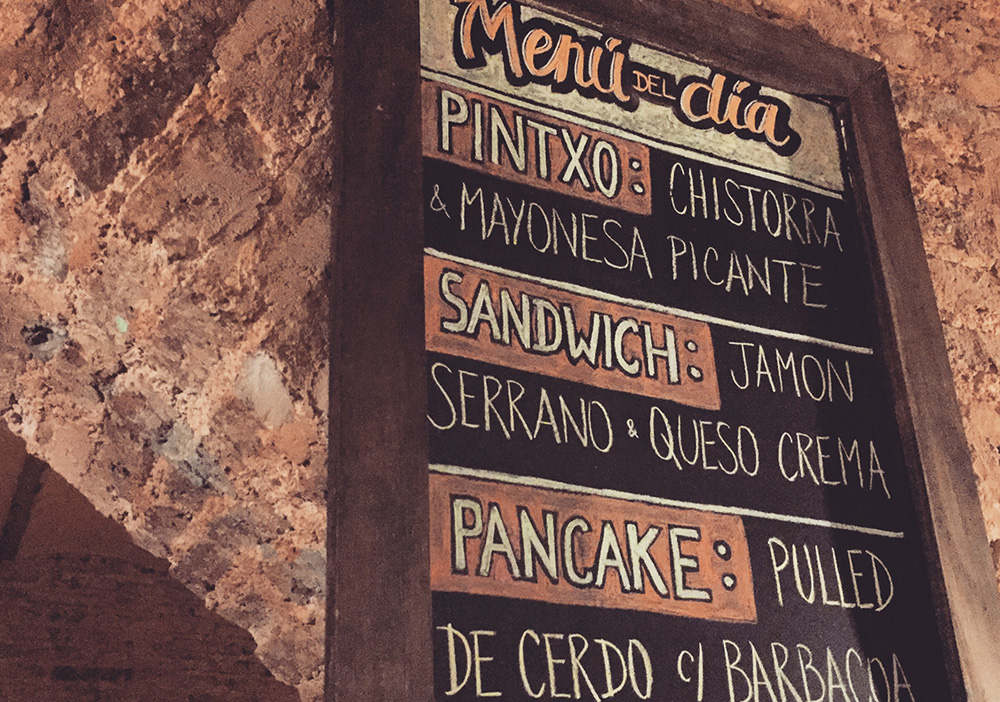 Menú DEL día
PINTXO: CHISTORRA
& MAYONESA PICANTE
SANDWICH: JAMON
SERRANO & QUESO CREMA
PANCAKE: PULLED
DE CERDO c/ BARBACOA